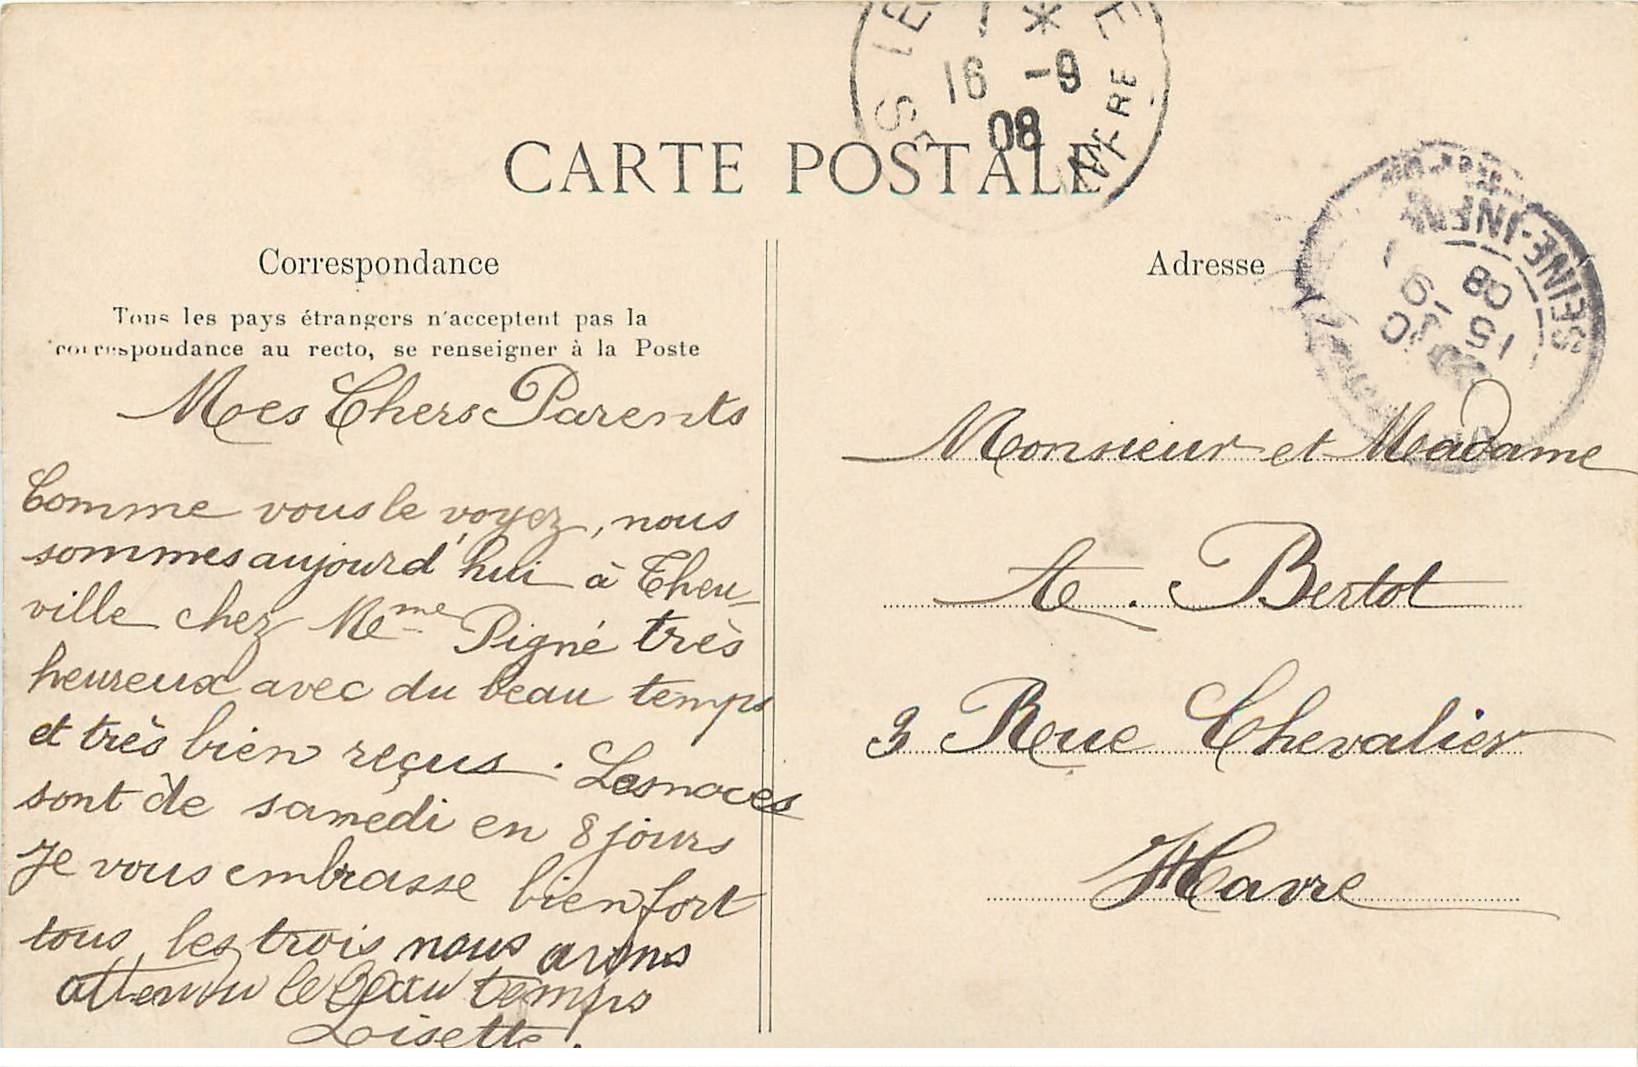 CARTE POSTALE
16 -9
08
Correspondance
Tous les pays étrangers n'acceptent pas la
correspondance au recto, se renseigner à la Poste
Mes Chers Parents
Comme vous le voyez, nous
sommes aujourd'hui à Theu-
ville chez Mme Pigné très
heureux avec du beau temps
et très bien reçus. Les noces
sont de samedi en 8 jours
Je vous embrasse bien fort
tous les trois nous avons
attendu le beau temps
Lisette.
Adresse
SEINE-INFRE
15
-9
08
Monsieur et Madame
A. Bertot
3 Rue Chevalier
Havre